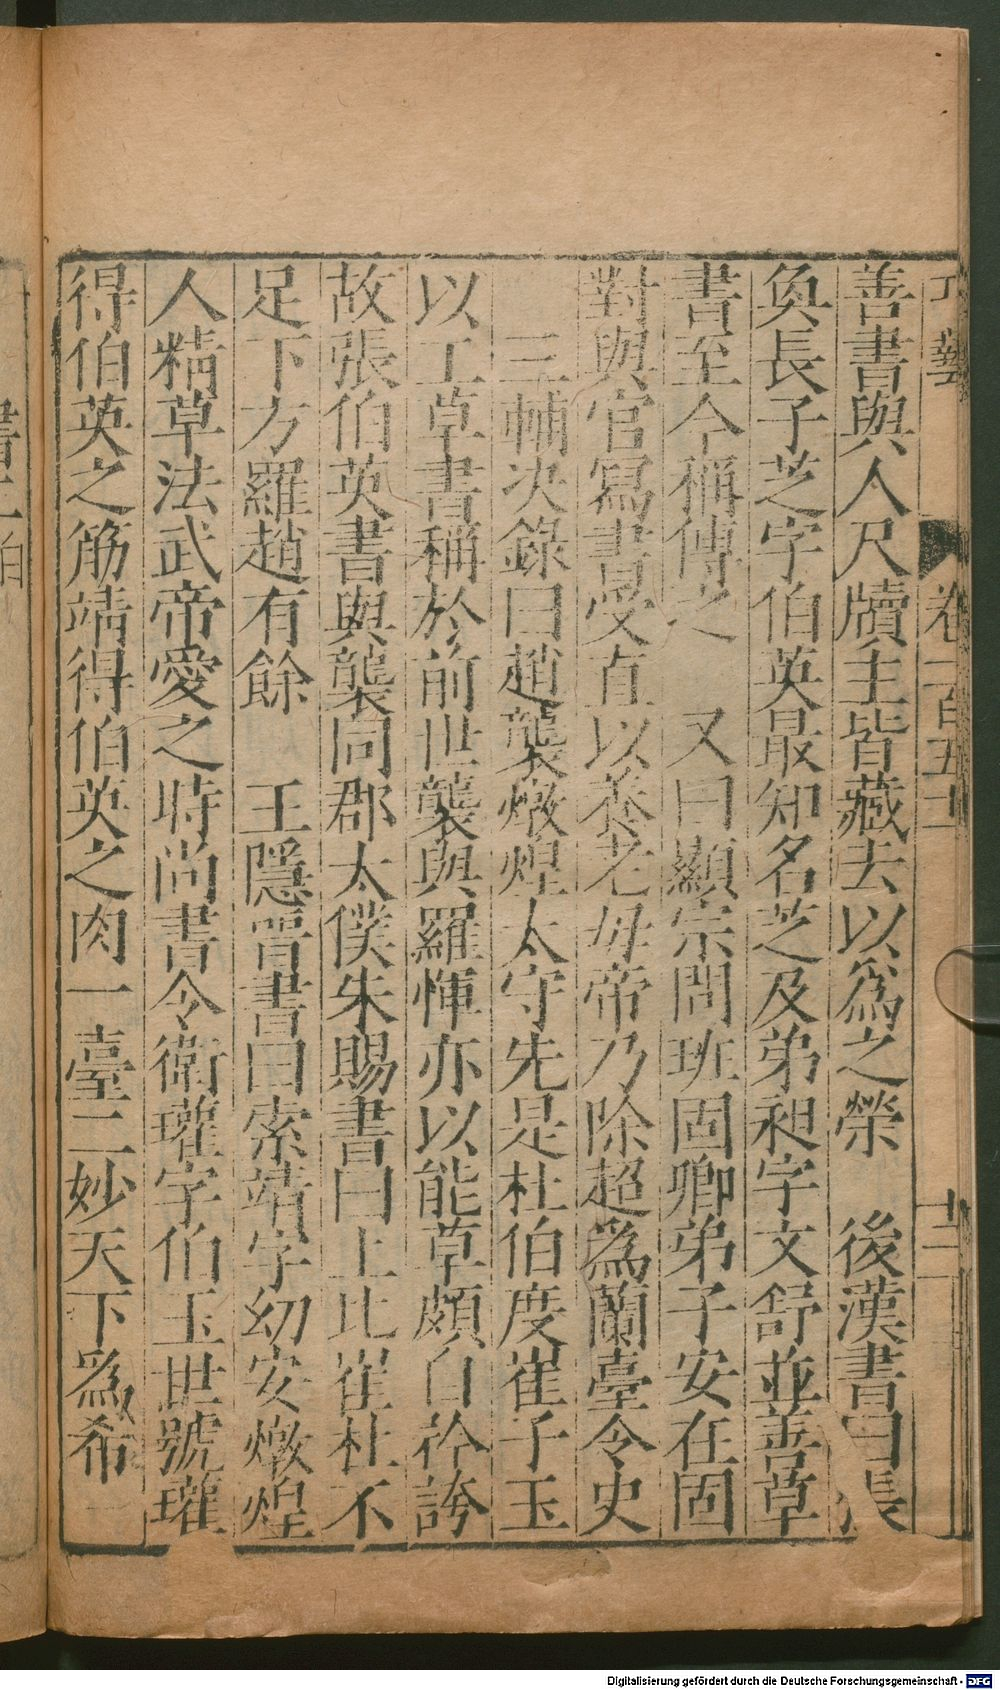 善書與人尺牘主皆藏去以爲之榮　後漢書曰張
奐長子芝字伯英最知名芝及弟昶字文舒並善草
書至今稱傳之　又曰顯宗問班固卿弟子安在固
對與官寫書受直以養老母帝乃除超爲蘭臺令史
三輔決錄曰趙襲燉煌太守先是杜伯度崔子玉
以工草書稱於前世襲與羅惲亦以能草頗自衿誇
故張伯英書與襲同郡太僕朱賜書曰上比崔杜不
足下方羅趙有餘　王隱晉書曰索靖字幼安燉煌
人精草法武帝愛之時尚書令衛瓘字伯玉世號瓘
得伯英之筋靖得伯英之肉一臺二妙天下爲希
Digitalisierung gefördert durch die Deutsche Forschungsgemeinschaft - DFG